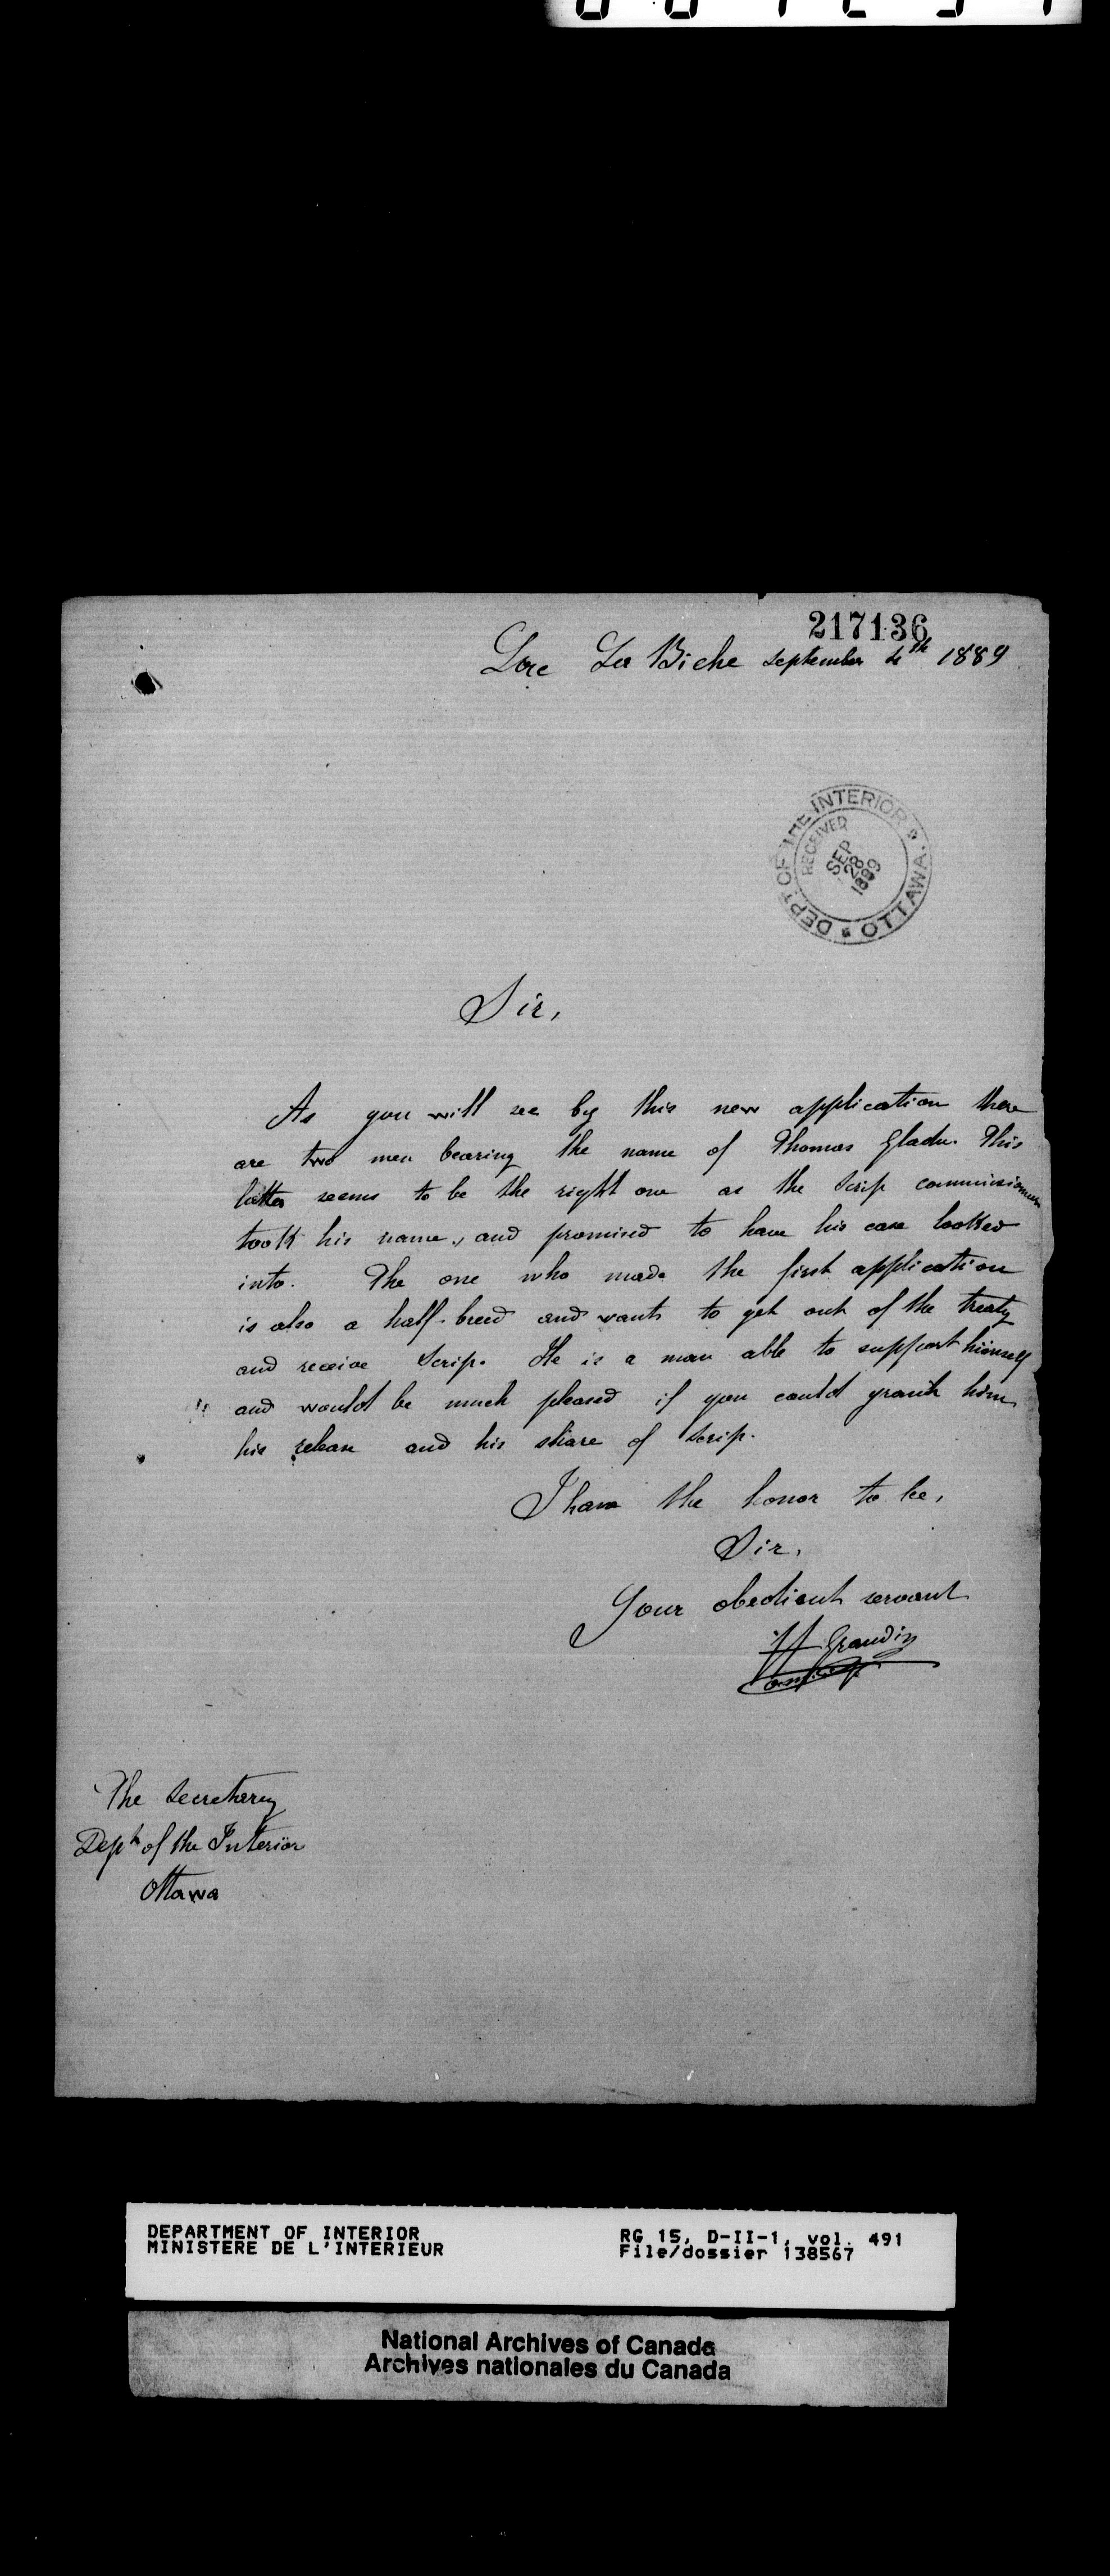 217136
Lac La Biche september 4th 1889
DEPT. OF THE INTERIOR
OTTAWA
RECEIVED
SEP
28
1889
Sir,
As you will see by this new application there
are two men bearing the name of Thomas Gladu. This
latter seems to be the right one as the Scrip commissioners
took his name, and promised to have his case looked
into. The one who made the first application
is also a half-breed and wants to get out of the treaty
and receive Scrip. He is a man able to support himself
and would be much pleased if you could grant him
his release and his share of Scrip.
I have the honor to be,
Sir,
Your obedient servant
H Grandin
The Secretary
Dept of the Interior
Ottawa
DEPARTMENT OF INTERIOR
MINISTERE DE L'INTERIEUR
RG 15, D-II-1, vol. 491
File/dossier 138567
National Archives of Canada
Archives nationales du Canada